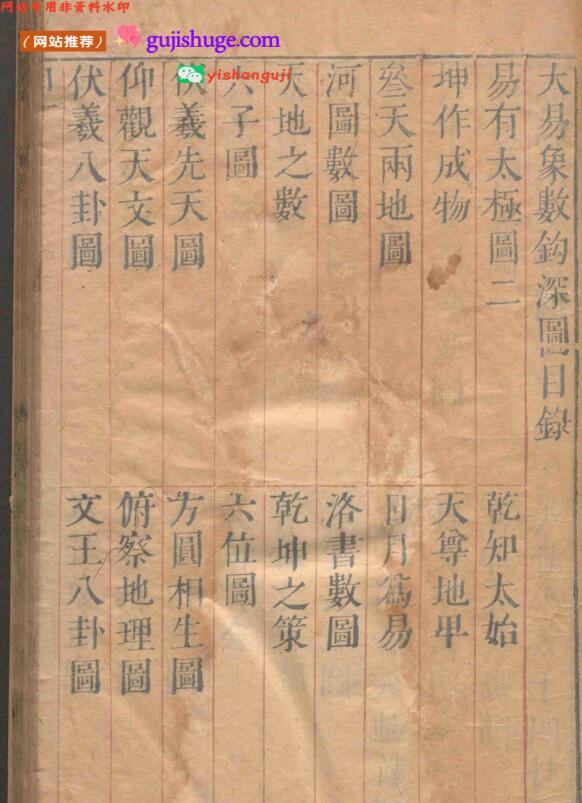 网站专用非资料水印
（网站推荐）
gujishuge.com
yishanguji
大易象數鈎深圖目錄
易有太極圖二
乾知太始
坤作成物
天尊地卑
叄天兩地圖
日月爲易
河圖數圖
洛書數圖
天地之數
乾坤之策
六子圖
六位圖
伏羲先天圖
方圓相生圖
仰觀天文圖
俯察地理圖
伏羲八卦圖
文王八卦圖